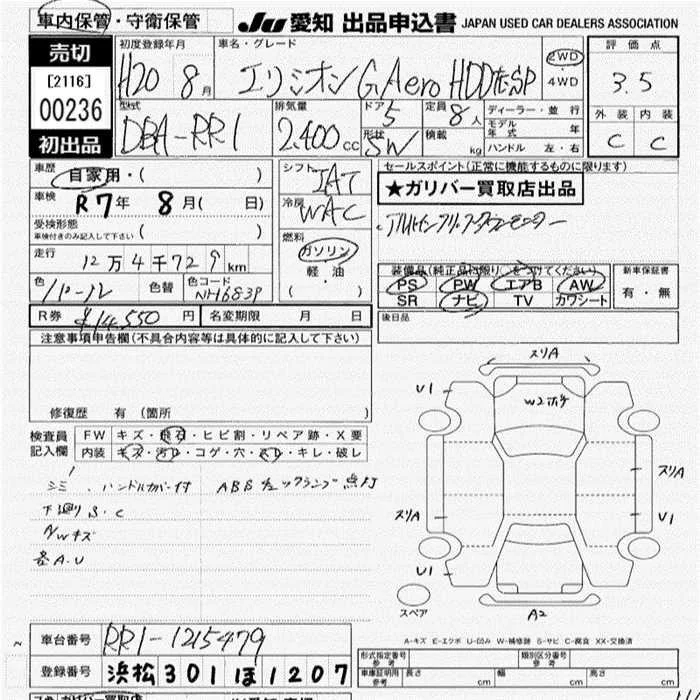 車内保管・守衛保管
JU 愛知 出品申込書 JAPAN USED CAR DEALERS ASSOCIATION
売切
[2116]
00236
初出品
初度登録年月
H20 8月
車名・グレード
エリシオン G Aero HDD
2WD
・
4WD
評価点
3.5
型式
DBA-RR1
排気量
2.400cc
ドア
5
形状
SW
定員
8人
積載
kg
ディーラー・並行
モデル年式 年
ハンドル 左・右
外装 内装
C C
車歴
自家用・( )
車検
R7年 8月( 日)
受検形態
車検付きのみ記入して下さい ( )
走行
12万4千729km
色
パール
色替
色コード
NH683P
シフト
IAT
冷房
WAC
燃料
ガソリン
軽油
( )
セールスポイント(正常に機能するものに限ります)
★ガリバー買取店出品
装備品(純正品に限り○をつけてください)
PS PW エアB AW
SR ナビ TV カワシート
新車保証書
有・無
R券 ¥14,550円
名変期限 月 日
後日品
注意事項申告欄(不具合内容等は具体的に記入して下さい)
修復歴 有 (箇所 )
検査員
記入欄
FW キズ・飛石・ヒビ割・リペア跡・X要
内装 キズ・汚レ・コゲ・穴・スレ・キレ・破レ
シミ、ハンドルカバー付 ABSチェックランプ点灯
下廻りS・C
AWキズ
各A.U
スリA
U1
W2ホチ
スリA
スリA
U1
U1
スペア
A2
A-キズ E-エクボ U-凹み W-補修跡 S-サビ C-腐食 XX-交換済
車台番号 RR1-1215479
登録番号 浜松301ほ1207
型式指定番号
参考
類別区分番号
参考
車庫証明用
参考
長さ cm
幅 cm
高さ cm